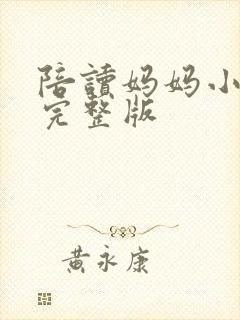 陪讀妈妈小
完整版
黄永康